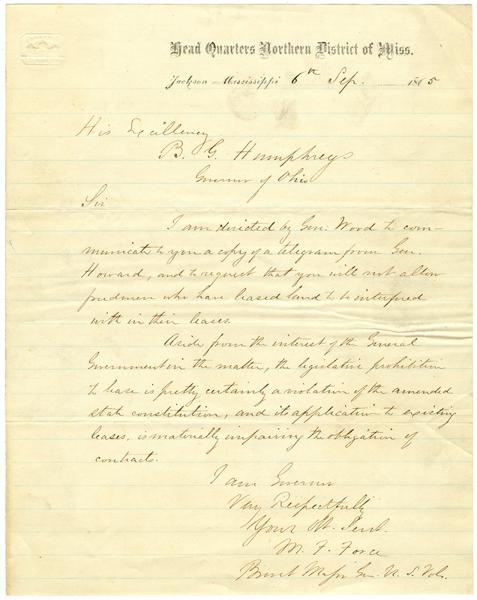 Head Quarters Northern District of Miss.
Jackson Mississippi 6th Sep. 1865
His Excellency
B. G. Humphreys
Governor of Ohio
Sir
I am directed by Gen. Wood to com-
municate to you a copy of a telegram from Gen.
Howard, and to request that you will not allow
freedmen who have leased land to be interfered
with in their leases.
Aside from the interest of the General
Government in the matter, the legislative prohibition
to lease is pretty certainly a violation of the amended
state constitution, and its application to existing
leases, is materially impairing the obligation of
contracts.
I am Governor
Very Respectfully
Your Ob. Servt.
M. F. Force
Brevet Major Gen. U. S. Vols.